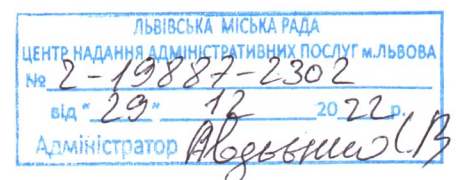 ЛЬВІВСЬКА МІСЬКА РАДА
ЦЕНТР НАДАННЯ АДМІНІСТРАТИВНИХ ПОСЛУГ м.ЛЬВОВА
№ 2-19887-2302
від " 29 " 12 20 22 р.
Адміністратор